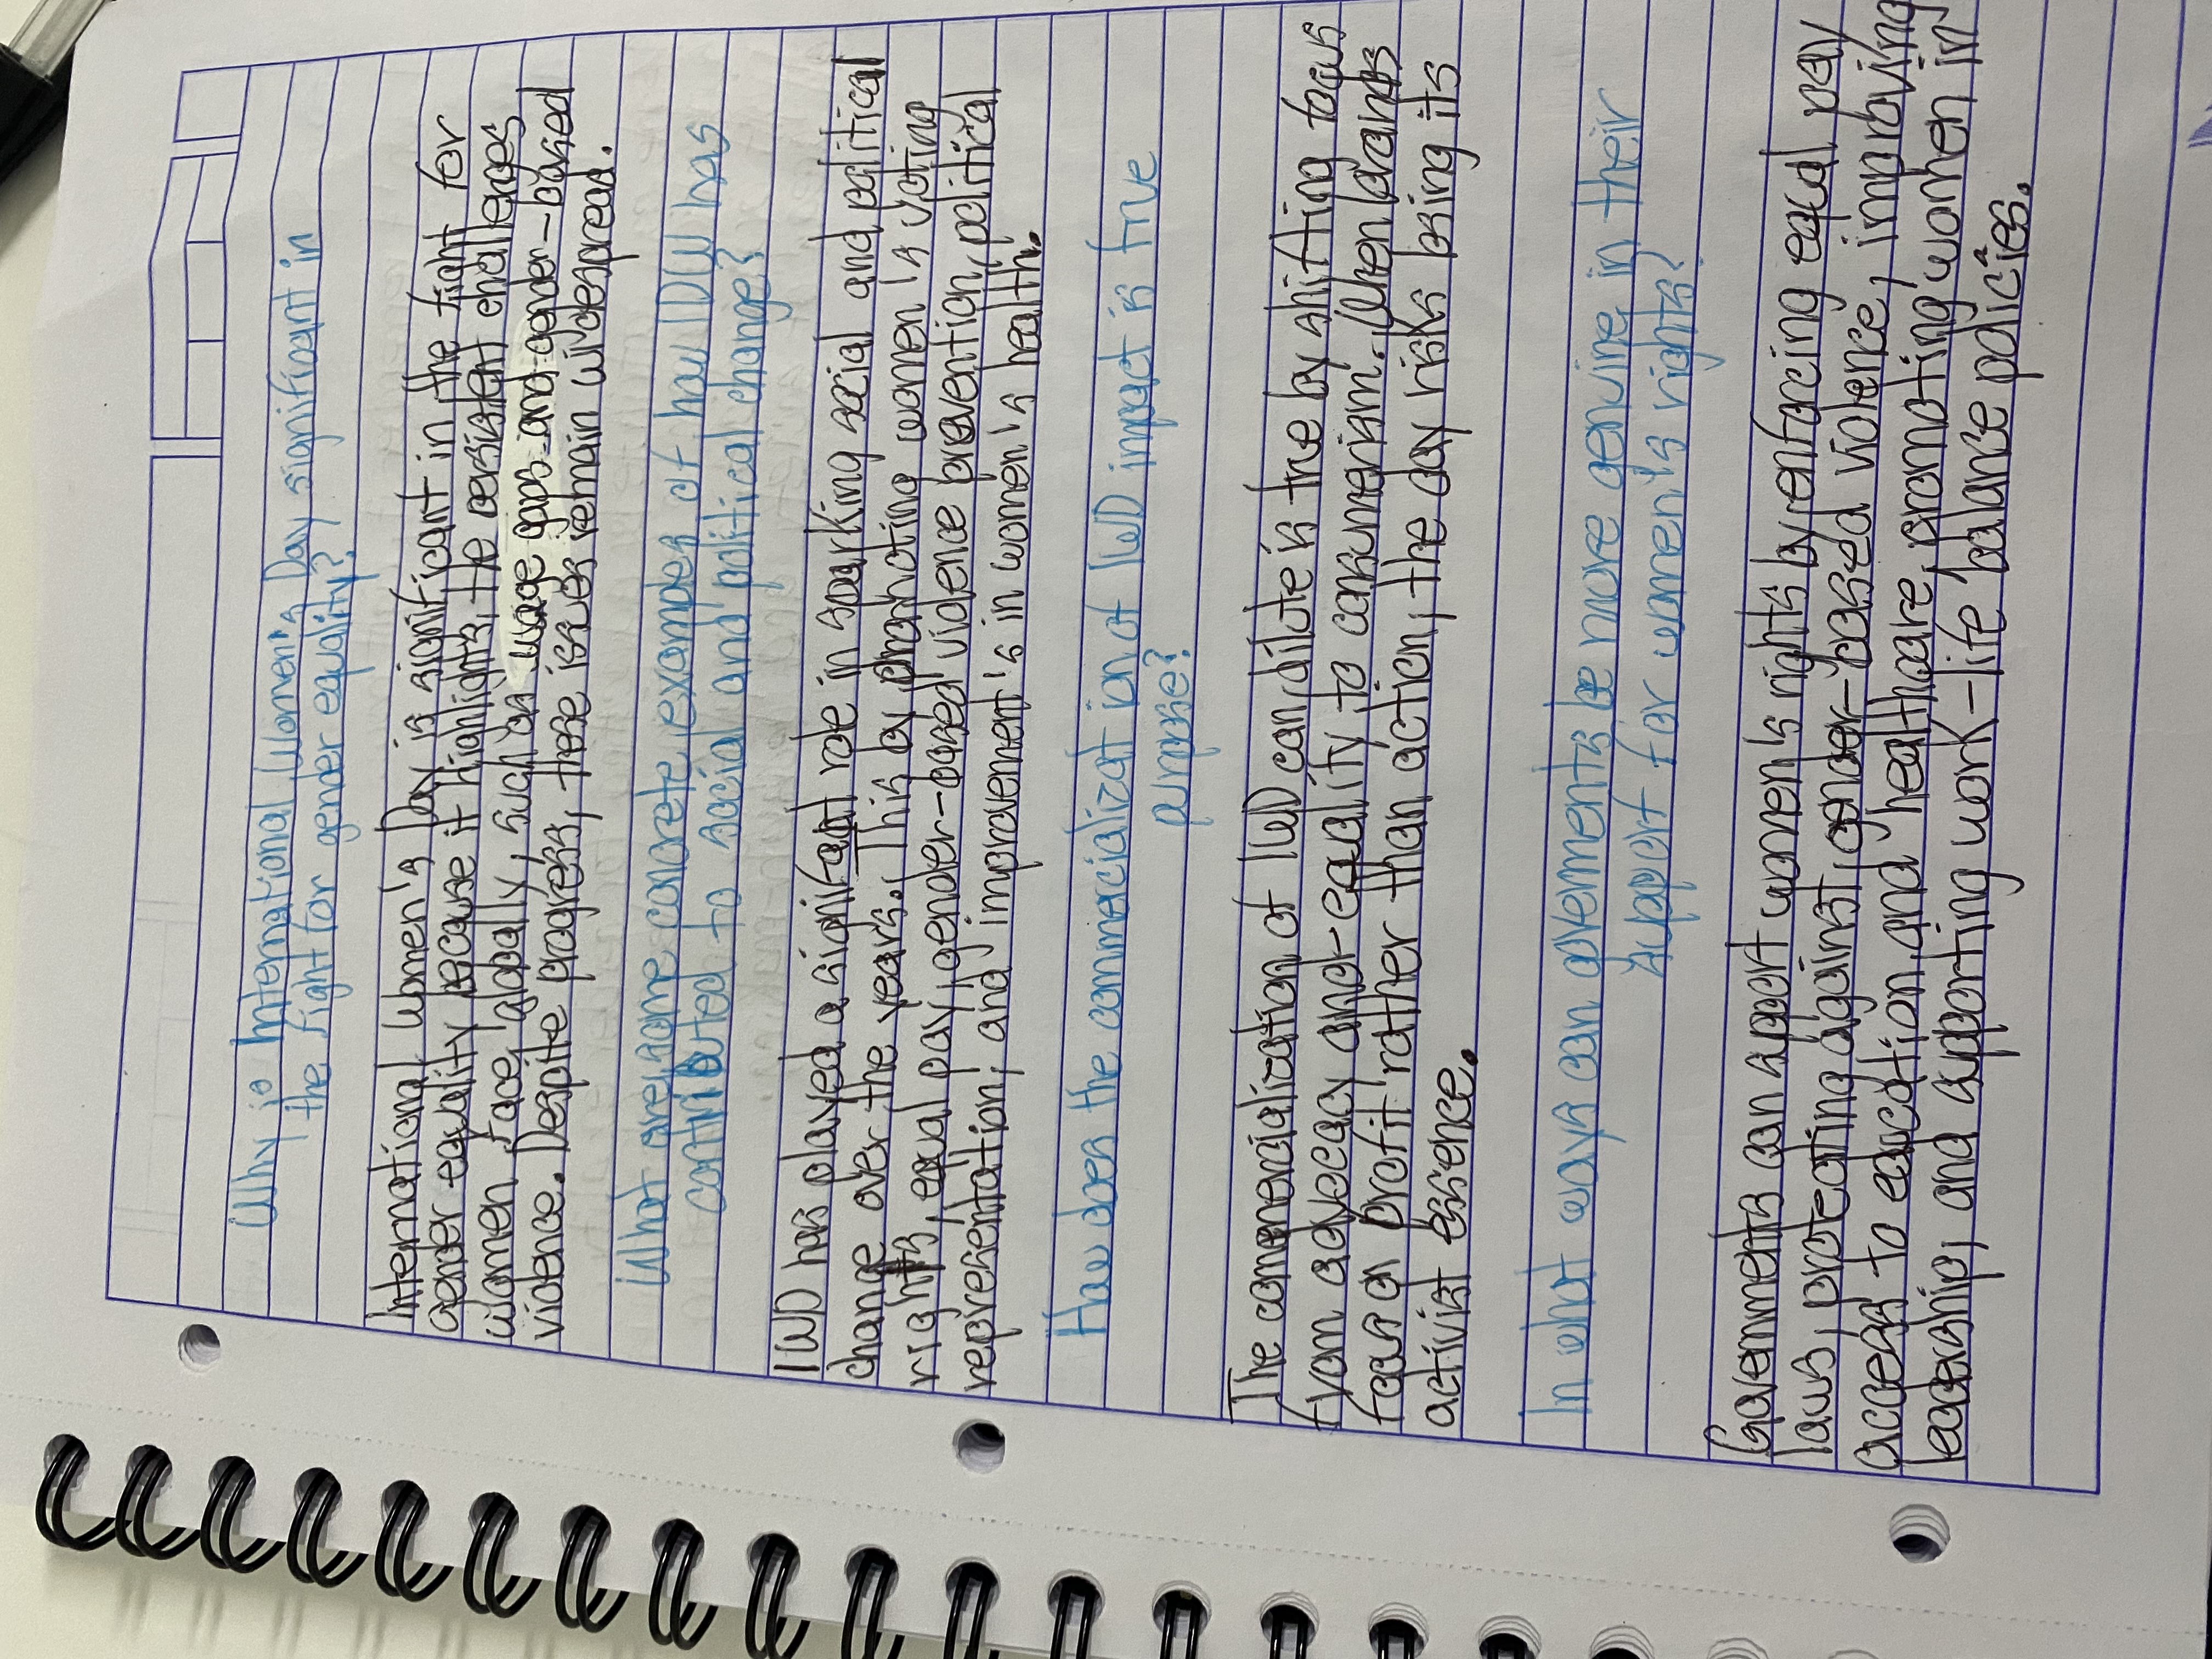 Why is International Women's Day significant in
the fight for gender equality?
International Women's Day is significant in the fight for
gender equality because it highlights the persistent challenges
women face globally, such as wage gaps and gender-based
violence. Despite progress, these issues remain widespread.
What are some concrete examples of how IDW has
contributed to social and political change?
IWD has played a significant role in sparking social and political
change over the years. This by promoting women's voting
rights, equal pay, gender-based violence prevention, political
representation, and improvement's in women's health.
How does the commercialization of IWD impact is true
purpose?
The commercialization of IWD can dilute is true by shifting focus
from advecacy and equality to consumerism. When brands
focus on profit rather than action, the day risks losing its
activist essence.
In what ways can governments be more genuine in their
support for women's rights?
Governments can support women's rights by enforcing equal pay
laws, protecting against gender-based violence, improving
access to education and healthcare, promoting women in
leadership, and supporting work-life balance policies.